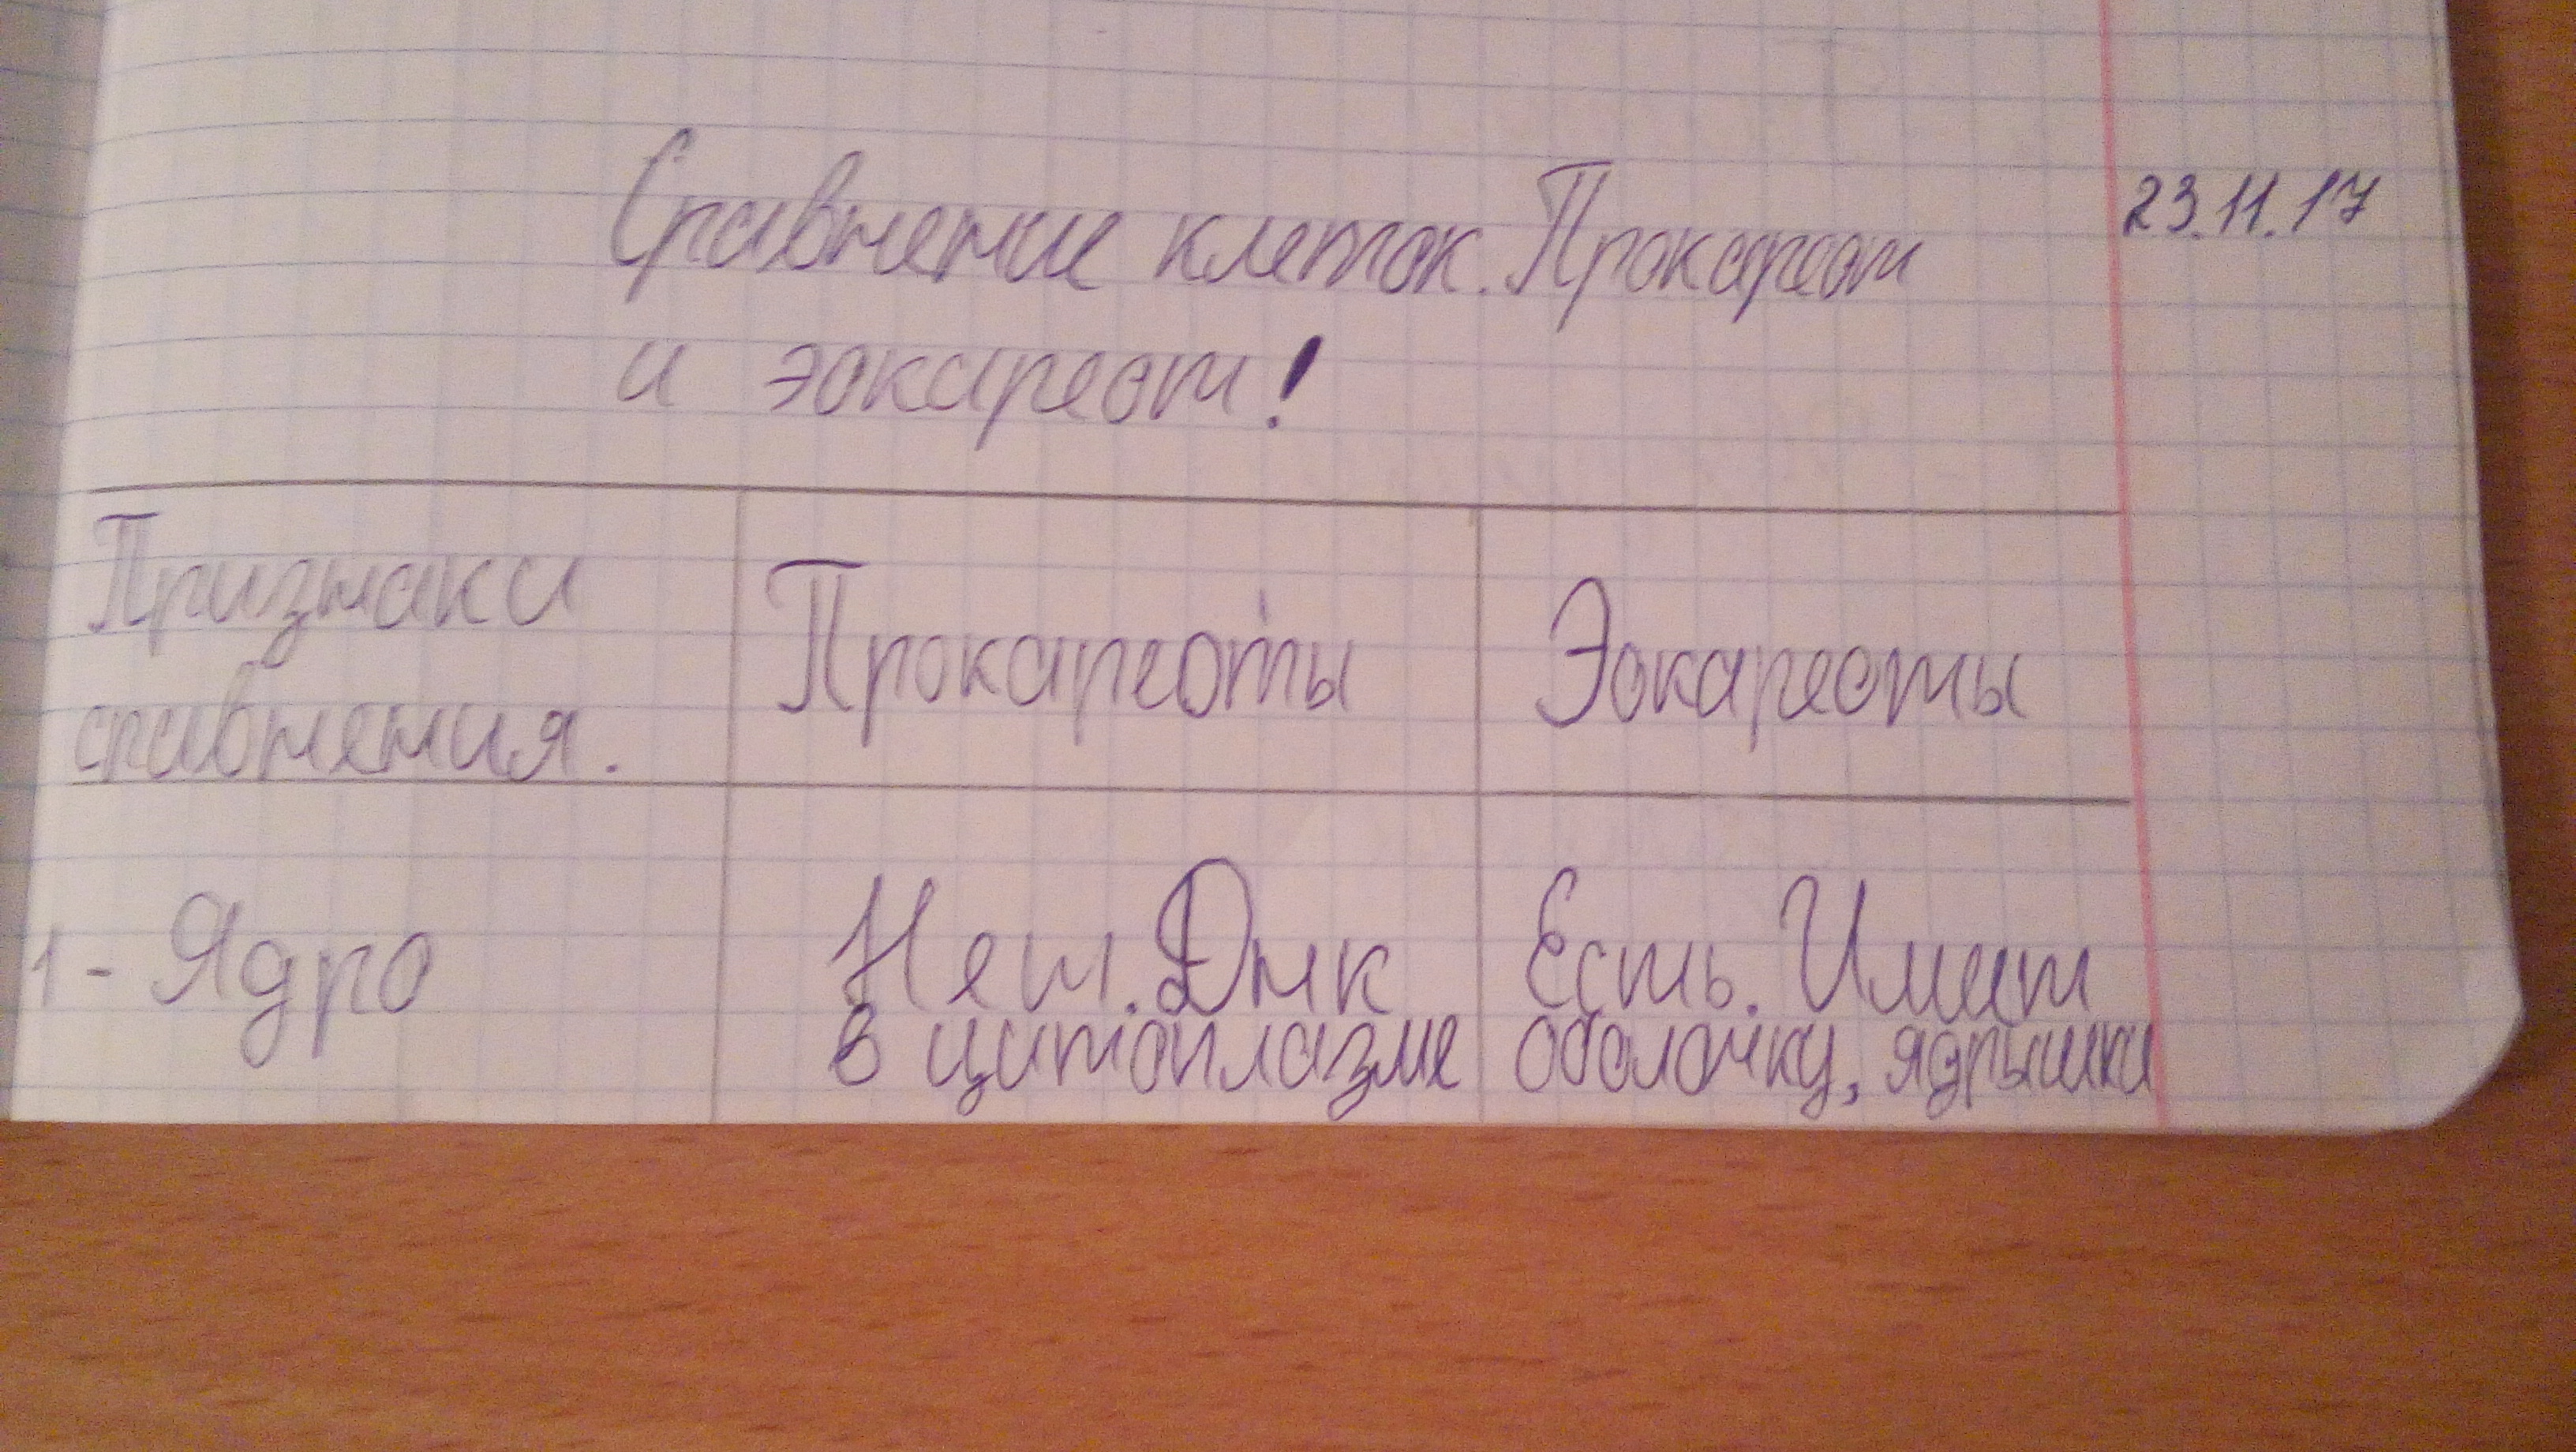 23.11.17
Сравнение клеток. Прокареот
и эокареот!
Признаки
сравнения.
Прокареоты
Эокареоты
1 - Ядро
Нет. Днк
в цитоплазме
Есть. Имеет
оболочку, ядрышки